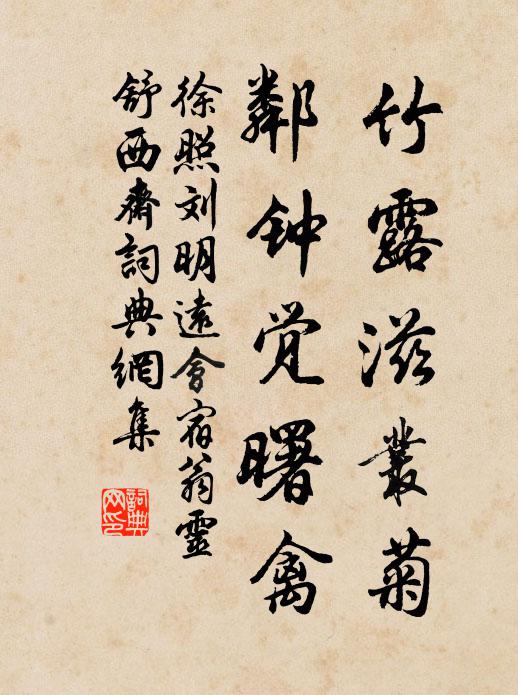 竹露滋叢菊
鄰钟觉曙禽
徐照刘明遠會宿翁靈
舒西齋詞典網集
詞典网印